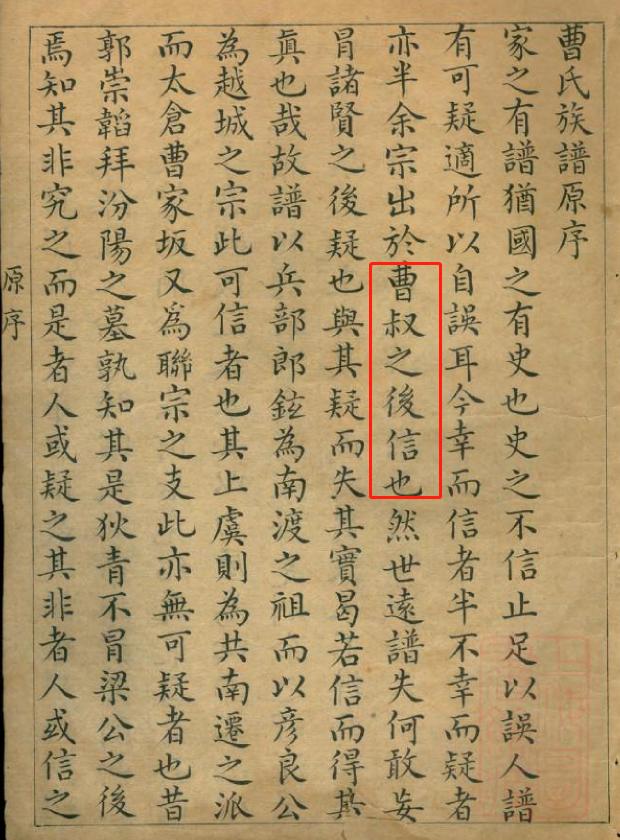 曹氏族譜原序
家之有譜猶國之有史也史之不信止足以誤人譜
有可疑適所以自誤耳今幸而信者半不幸而疑者
亦半余宗出於曹叔之後信也然世遠譜失何敢妄
冒諸賢之後疑也與其疑而失其實曷若信而得其
眞也哉故譜以兵部郎鉉為南渡之祖而以彥良公
為越城之宗此可信者也其上虞則為共南遷之派
而太倉曹家坂又為聯宗之支此亦無可疑者也昔
郭崇韜拜汾陽之墓孰知其是狄青不冒梁公之後
焉知其非究之而是者人或疑之其非者人或信之
原序